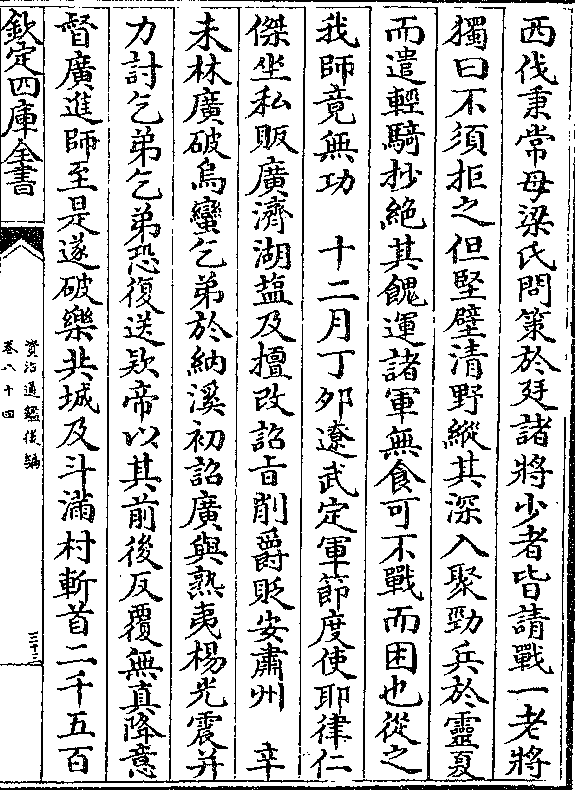 西伐秉常母梁氏問策於廷諸將少者皆請戰一老將
獨曰不須拒之但堅壁清野縱其深入聚勁兵於靈夏
而遣輕騎抄絶其餽運諸軍無食可不戰而困也從之
我師竟無功　十二月丁夘遼武定軍節度使耶律仁
傑坐私販廣濟湖盐及擅改詔㫖削爵貶安肅州　辛
未林廣破烏蠻乞弟於納溪初詔廣與熟夷楊光震并
力討乞弟乞弟恐復送欵帝以其前後反覆無真降意
督廣進師至是遂破樂共城及斗滿村斬首二千五百
欽定四庫全書
資治通鑑後編
卷八十四
三十三